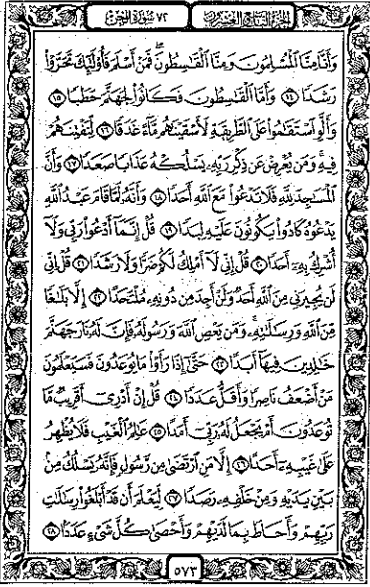 الجزء التاسع والعشرون
٧٢ سورة الجن
وَأَنَّا مِنَّا ٱلْمُسْلِمُونَ وَمِنَّا ٱلْقَٰسِطُونَ ۖ فَمَنْ أَسْلَمَ فَأُو۟لَٰٓئِكَ تَحَرَّوْا۟
رَشَدًا ١٤ وَأَمَّا ٱلْقَٰسِطُونَ فَكَانُوا۟ لِجَهَنَّمَ حَطَبًا ١٥
وَأَلَّوِ ٱسْتَقَٰمُوا۟ عَلَى ٱلطَّرِيقَةِ لَأَسْقَيْنَٰهُم مَّآءً غَدَقًا ١٦ لِّنَفْتِنَهُمْ
فِيهِ ۚ وَمَن يُعْرِضْ عَن ذِكْرِ رَبِّهِۦ يَسْلُكْهُ عَذَابًا صَعَدًا ١٧ وَأَنَّ
ٱلْمَسَٰجِدَ لِلَّهِ فَلَا تَدْعُوا۟ مَعَ ٱللَّهِ أَحَدًا ١٨ وَأَنَّهُۥ لَمَّا قَامَ عَبْدُ ٱللَّهِ
يَدْعُوهُ كَادُوا۟ يَكُونُونَ عَلَيْهِ لِبَدًا ١٩ قُلْ إِنَّمَآ أَدْعُوا۟ رَبِّى وَلَآ
أُشْرِكُ بِهِۦٓ أَحَدًا ٢٠ قُلْ إِنِّى لَآ أَمْلِكُ لَكُمْ ضَرًّا وَلَا رَشَدًا ٢١ قُلْ إِنِّى
لَن يُجِيرَنِى مِنَ ٱللَّهِ أَحَدٌ وَلَنْ أَجِدَ مِن دُونِهِۦ مُلْتَحَدًا ٢٢ إِلَّا بَلَٰغًا
مِّنَ ٱللَّهِ وَرِسَٰلَٰتِهِۦ ۚ وَمَن يَعْصِ ٱللَّهَ وَرَسُولَهُۥ فَإِنَّ لَهُۥ نَارَ جَهَنَّمَ
خَٰلِدِينَ فِيهَآ أَبَدًا ٢٣ حَتَّىٰٓ إِذَا رَأَوْا۟ مَا يُوعَدُونَ فَسَيَعْلَمُونَ
مَنْ أَضْعَفُ نَاصِرًا وَأَقَلُّ عَدَدًا ٢٤ قُلْ إِنْ أَدْرِىٓ أَقَرِيبٌ مَّا
تُوعَدُونَ أَمْ يَجْعَلُ لَهُۥ رَبِّىٓ أَمَدًا ٢٥ عَٰلِمُ ٱلْغَيْبِ فَلَا يُظْهِرُ
عَلَىٰ غَيْبِهِۦٓ أَحَدًا ٢٦ إِلَّا مَنِ ٱرْتَضَىٰ مِن رَّسُولٍ فَإِنَّهُۥ يَسْلُكُ مِنۢ
بَيْنِ يَدَيْهِ وَمِنْ خَلْفِهِۦ رَصَدًا ٢٧ لِّيَعْلَمَ أَن قَدْ أَبْلَغُوا۟ رِسَٰلَٰتِ
رَبِّهِمْ وَأَحَاطَ بِمَا لَدَيْهِمْ وَأَحْصَىٰ كُلَّ شَىْءٍ عَدَدًا ٢٨
٥٧٣